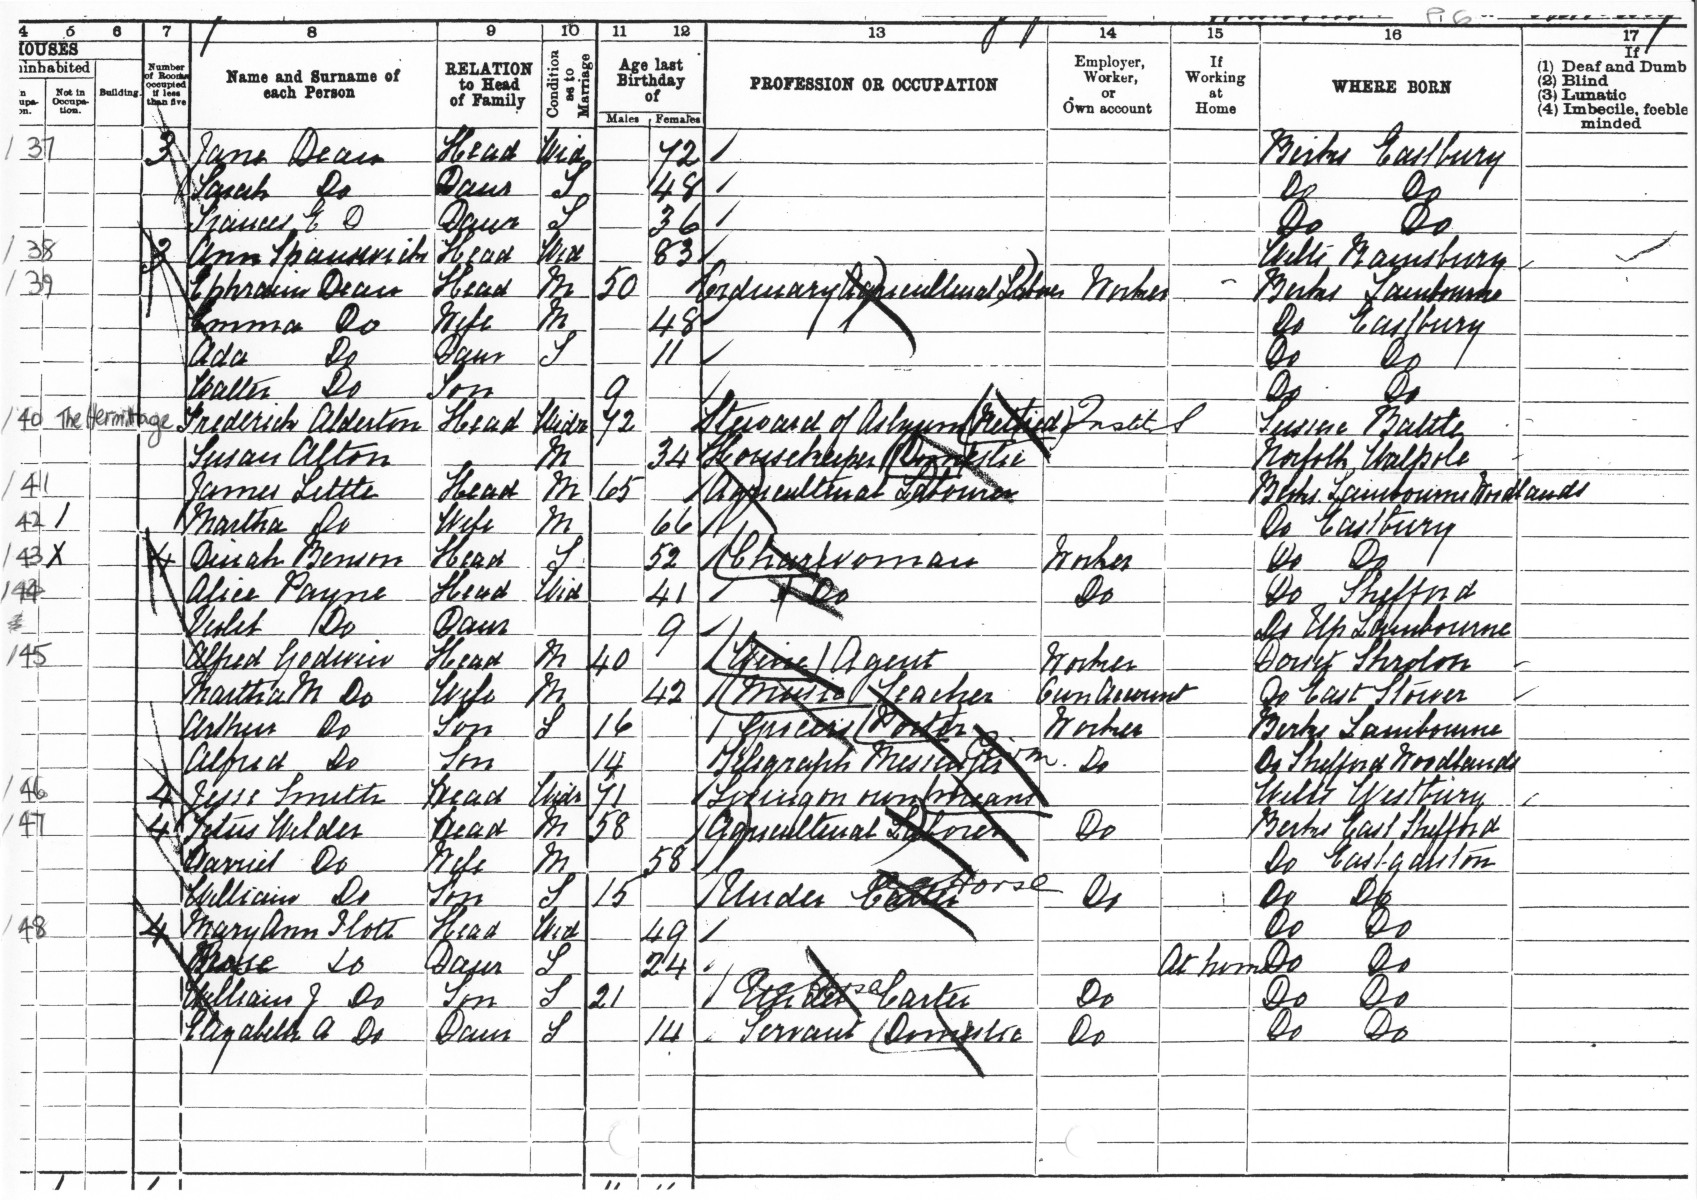 P.6
4 5 6 7 8 9 10 11 12 13 14 15 16 17
HOUSES
inhabited
Not in Occupa-tion.
Building.
Number of Rooms occupied if less than five
Name and Surname of each Person
RELATION to Head of Family
Condition as to Marriage
Age last Birthday of
Males Females
PROFESSION OR OCCUPATION
Employer, Worker, or Own account
If Working at Home
WHERE BORN
If
(1) Deaf and Dumb
(2) Blind
(3) Lunatic
(4) Imbecile, feeble minded
137 3 Jane Dean Head Wid 72 Berks Eastbury
Sarah Do Daur S 48 Do Do
Frances E D Daur S 36 Do Do
138 3 Ann Spanswick Head Wid 83 Wilts Ramsbury
139 Ephraim Dean Head M 50 Ordinary Agricultural Labour Worker - Berks Lambourne
Emma Do Wife M 48 Do Eastbury
Ada Do Daur S 11 Do Do
Walter Do Son 9 Do Do
140 The Hermitage Frederick Alderton Head Widr 72 Steward of Asylum (Retired) Instit S Sussex Battle
Susan Alton M 34 Housekeeper (Domestic Norfolk Walpole
141 James Little Head M 65 Agricultural Labourer Berks Lambourne Woodlands
42 1 Martha Do Wife M 66 Do Eastbury
143 X 4 Dinah Benson Head S 52 Charwoman Worker Do Do
144 Alice Payne Head Wid 41 Do Do Do Shefford
Violet Do Daur 9 Do Up Lambourne
145 Alfred Godwin Head M 40 (Wine) Agent Worker Dorset Shroton
Martha M Do Wife M 42 (Music) Teacher Own Account Do East Stower
Arthur Do Son S 16 Grocers (Porter Worker Berks Lambourne
Alfred Do Son 14 Telegraph Messenger Do Do Shefford Woodlands
146 4 Jesse Smith Head Widr 71 Living on own means Wilts Westbury
147 4 Titus Wilder Head M 58 Agricultural Laborer Do Berks East Shefford
Harriet Do Wife M 58 Do East-garston
William Do Son S 15 Under Carter Horse Do Do Do
148 4 Mary Ann Flott Head Wid 49 Do Do
Rose Do Daur S 24 At home Do Do
William J Do Son S 21 Under Carter Do Do Do
Elizabeth A Do Daur S 14 Servant (Domestic Do Do Do